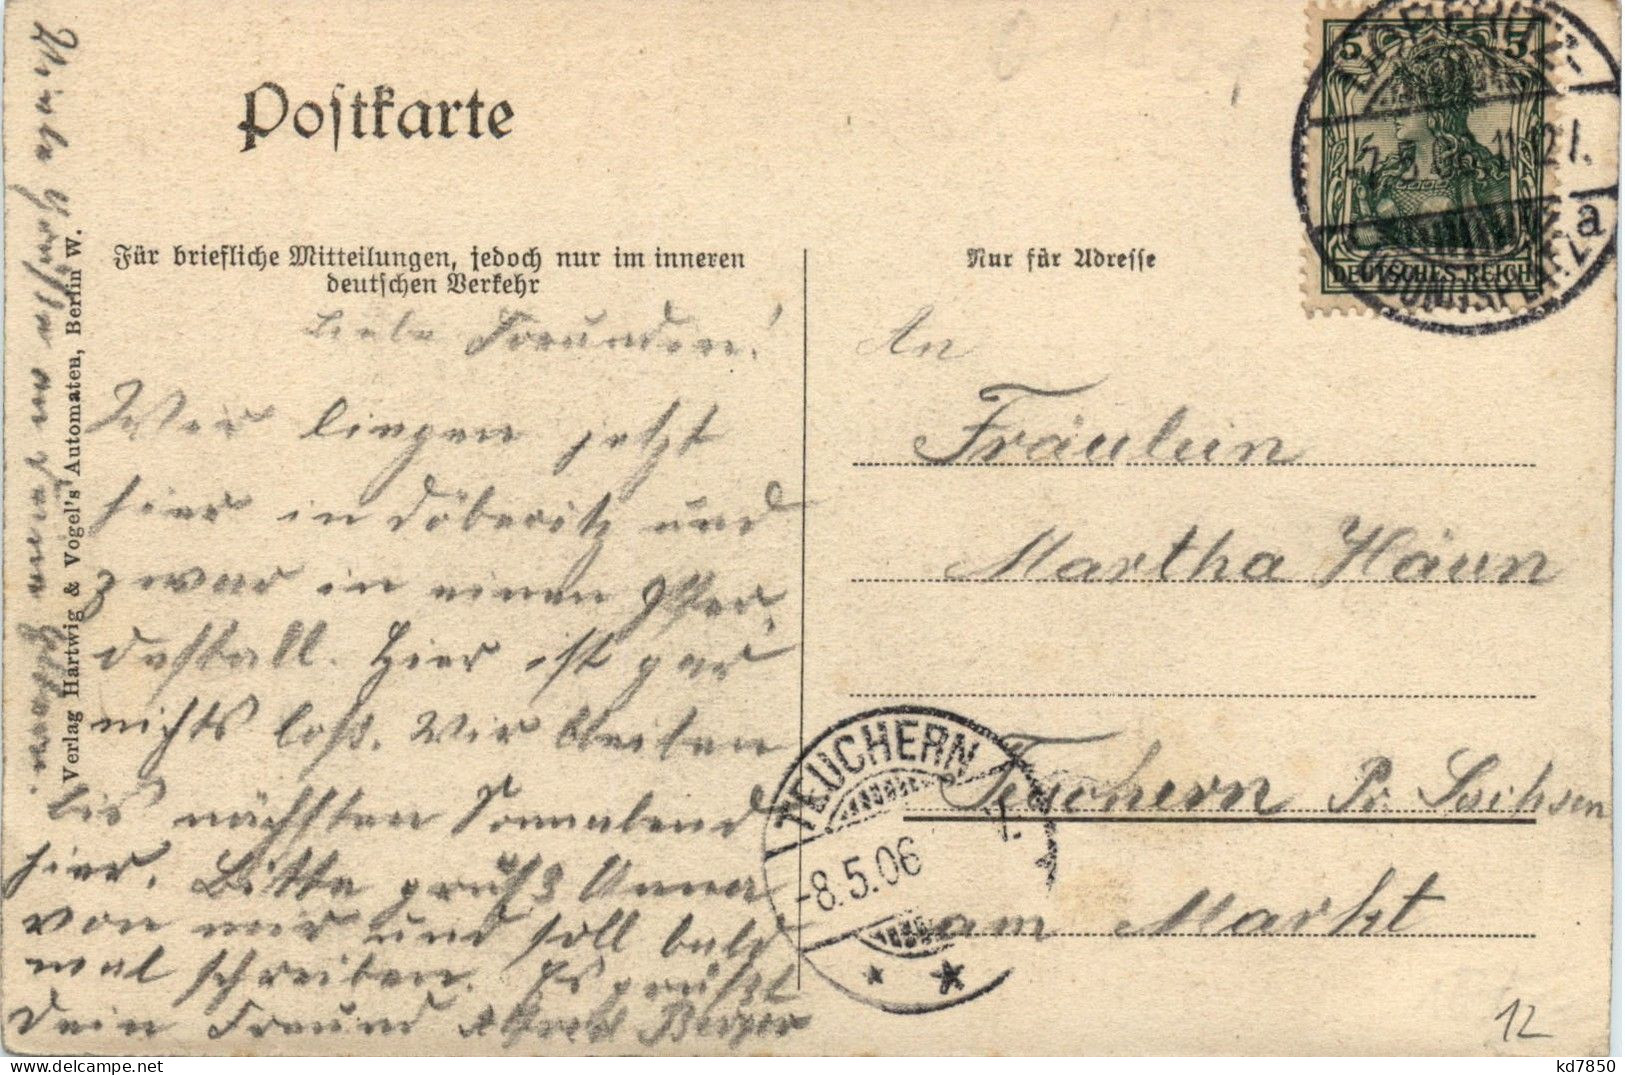 Postkarte
Für briefliche Mitteilungen, jedoch nur im inneren
deutschen Verkehr
Nur für Adresse
Liebe Freundin!
Wir liegen jetzt
hier in Döberitz und
zwar in einen Pfer-
destall. Hier ist gar
nichts loß. Wir bleiben
bis nächsten Sonnabend
hier. Bitte grüße Anna
von mir und soll bald
mal schreiben. Es grüßt
Dein Freund Alfred Berger
Viele Grüße an
Verlag Hartwig & Vogel's Automaten, Berlin W.
An
Fräulein
Martha Häun
Teuchern Pr. Sachsen
am Markt
5 5
DEUTSCHES REICH
11-12 V.
a
TEUCHERN
-8.5.06
12
kd7850